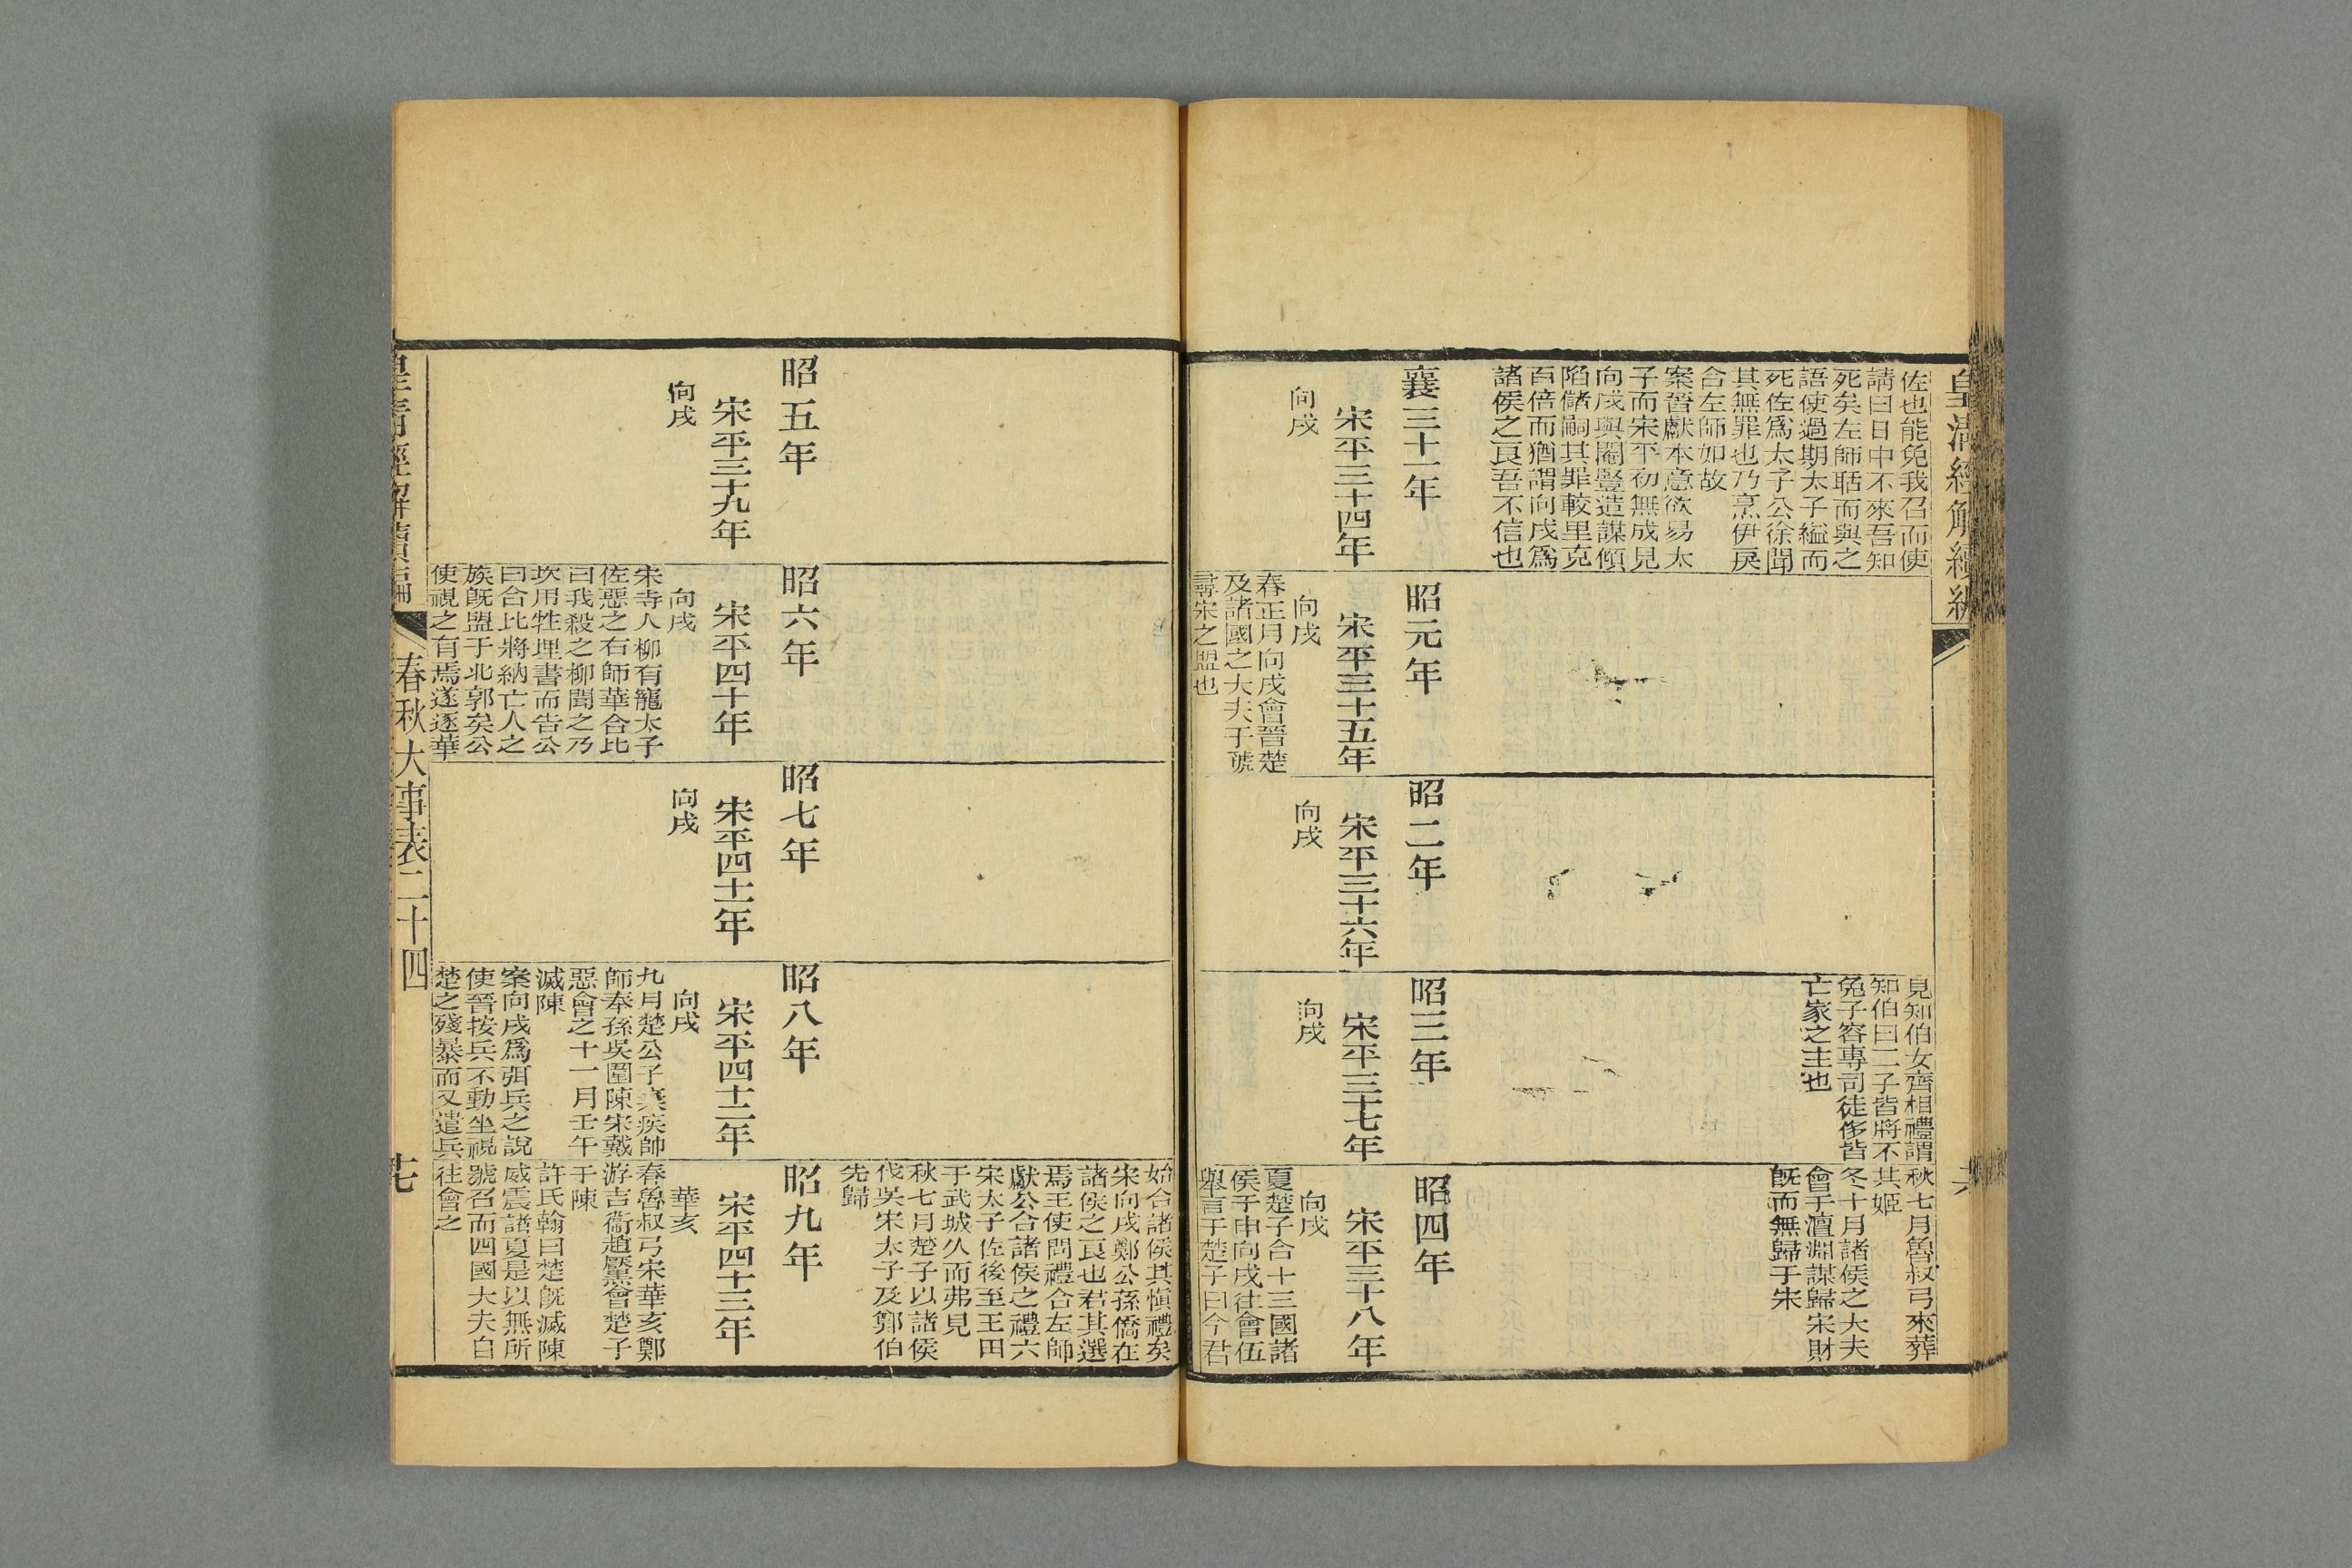 皇清經解續編
佐也能免我召而使
請曰日中不來吾知
死矣左師聒而與之
語使過期太子縊而
死佐爲太子公徐聞
其無罪也乃烹伊戾
合左師如故
案晉獻本意欲易太
子而宋平初無成見
向戌與閹豎造謀傾
陷儲嗣其罪較里克
百倍而猶謂向戌爲
諸侯之良吾不信也
襄三十一年
宋平三十四年
向戌
昭元年
宋平三十五年
向戌
春正月向戌會晉楚
及諸國之大夫于虢
尋宋之盟也
昭二年
宋平三十六年
向戌
見知伯女齊相禮謂
知伯曰二子皆將不
免子容專司徒侈皆
亡家之主也
昭三年
宋平三十七年
向戌
秋七月魯叔弓來葬
其姬
冬十月諸侯之大夫
會于澶淵謀歸宋財
旣而無歸于宋
昭四年
宋平三十八年
向戌
夏楚子合十三國諸
侯于申向戌往會伍
舉言于楚子曰今君
昭五年
宋平三十九年
向戌
昭六年
宋平四十年
向戌
宋寺人柳有寵太子
佐惡之右師華合比
曰我殺之柳聞之乃
坎用牲埋書而告公
曰合比將納亡人之
族旣盟于北郭矣公
使視之有焉遂逐華
昭七年
宋平四十一年
向戌
昭八年
宋平四十二年
向戌
九月楚公子棄疾帥
師奉孫吳圍陳宋戴
惡會之十一月壬午
滅陳
案向戌爲弭兵之說
使晉按兵不動坐視
楚之殘暴而又遣兵
始合諸侯其愼禮矣
宋向戌鄭公孫僑在
諸侯之良也君其選
焉王使問禮合左師
獻公合諸侯之禮六
宋太子佐後至王田
于武城久而弗見
秋七月楚子以諸侯
伐吳宋太子及鄭伯
先歸
昭九年
宋平四十三年
華亥
春魯叔弓宋華亥鄭
游吉衞趙黶會楚子
于陳
許氏翰曰楚旣滅陳
威震諸夏是以無所
號召而四國大夫自
往會之
皇清經解續編
春秋大事表二十四
七